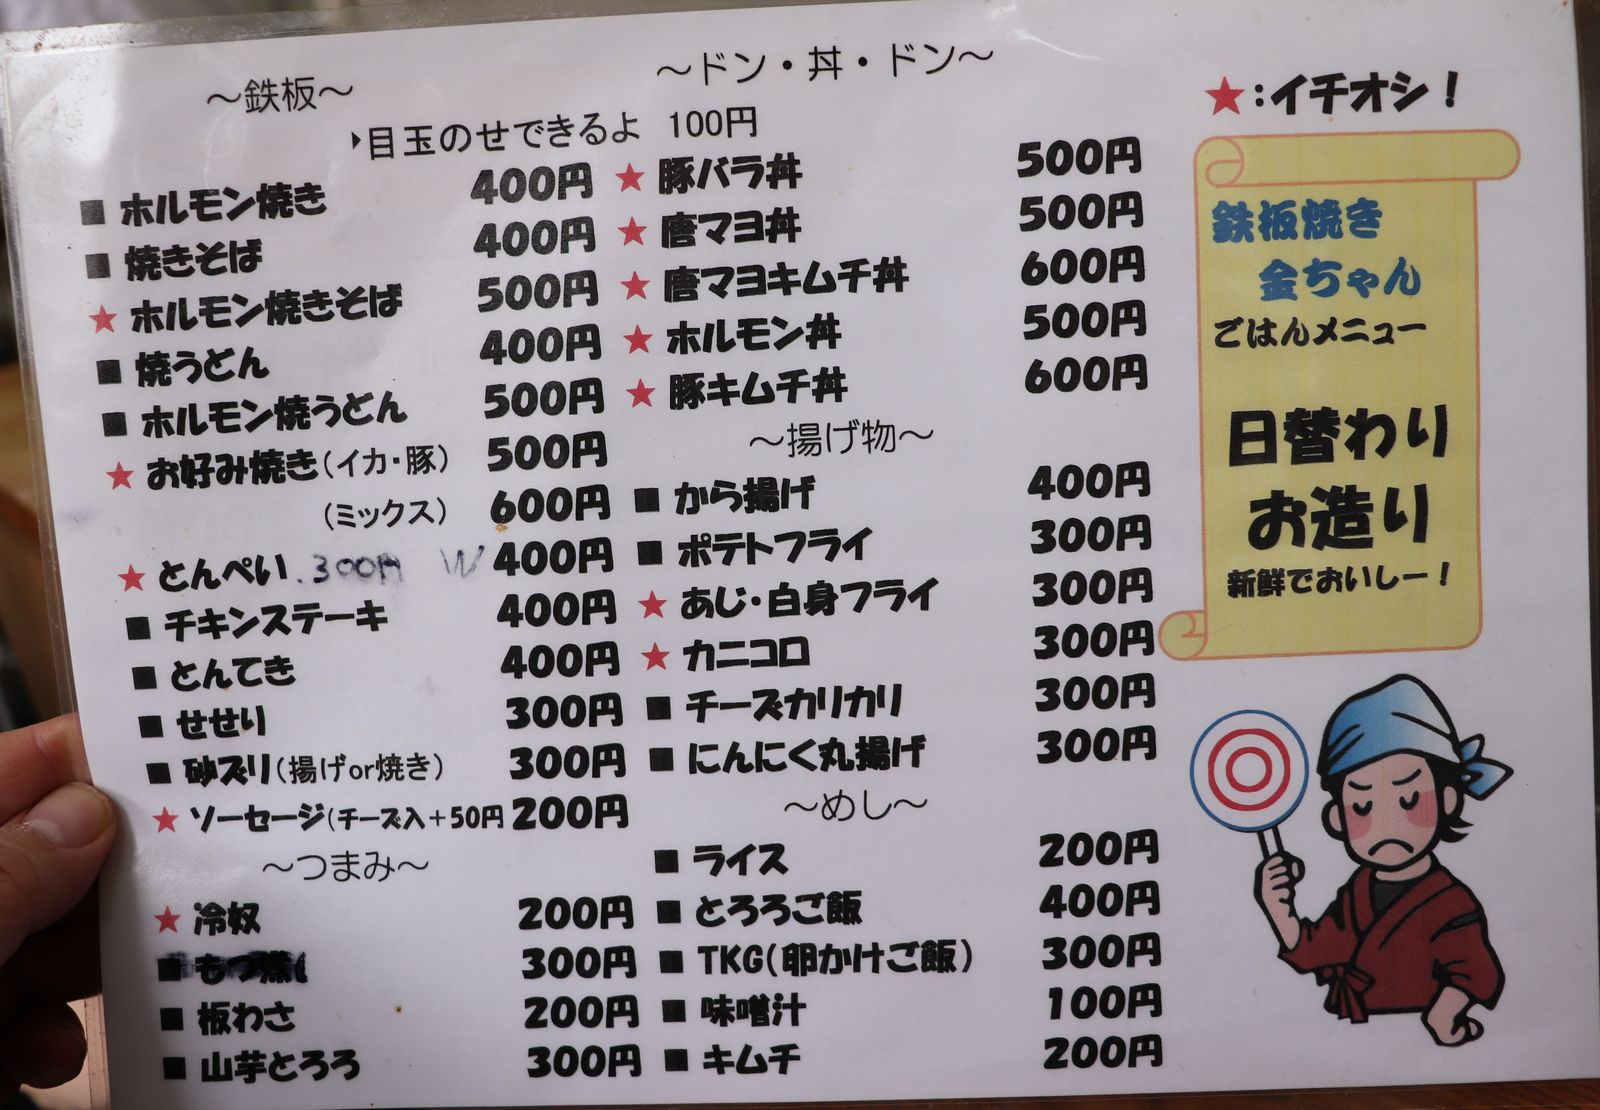 ～鉄板～
▶目玉のせできるよ 100円
■ホルモン焼き 400円
■焼きそば 400円
★ホルモン焼きそば 500円
■焼うどん 400円
■ホルモン焼うどん 500円
★お好み焼き(イカ・豚) 500円
(ミックス) 600円
★とんぺい 300円 W 400円
■チキンステーキ 400円
■とんてき 400円
■せせり 300円
■砂ズリ(揚げor焼き) 300円
★ソーセージ(チーズ入＋50円 200円
～つまみ～
★冷奴 200円
■もつ煮 300円
■板わさ 200円
■山芋とろろ 300円
～ドン・丼・ドン～
★豚バラ丼 500円
★唐マヨ丼 500円
★唐マヨキムチ丼 600円
★ホルモン丼 500円
★豚キムチ丼 600円
～揚げ物～
■から揚げ 400円
■ポテトフライ 300円
★あじ・白身フライ 300円
★カニコロ 300円
■チーズカリカリ 300円
■にんにく丸揚げ 300円
～めし～
■ライス 200円
■とろろご飯 400円
■TKG(卵かけご飯) 300円
■味噌汁 100円
■キムチ 200円
★:イチオシ！
鉄板焼き
金ちゃん
ごはんメニュー
日替わり
お造り
新鮮でおいしー！